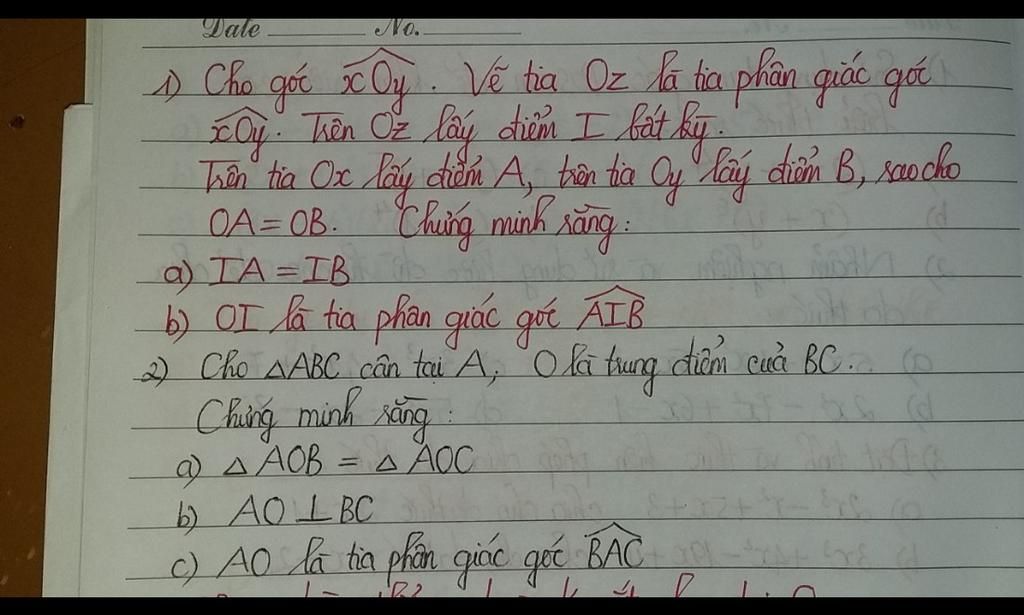 Date No.
1) Cho góc xOy. Vẽ tia Oz là tia phân giác góc
xOy. Trên Oz lấy điểm I bất kỳ.
Trên tia Ox lấy điểm A, trên tia Oy lấy điểm B, sao cho
OA = OB. Chứng minh rằng:
a) IA = IB
b) OI là tia phân giác góc AIB
2) Cho △ABC cân tại A, O là trung điểm của BC.
Chứng minh rằng:
a) △AOB = △AOC
b) AO ⊥ BC
c) AO là tia phân giác góc BAC